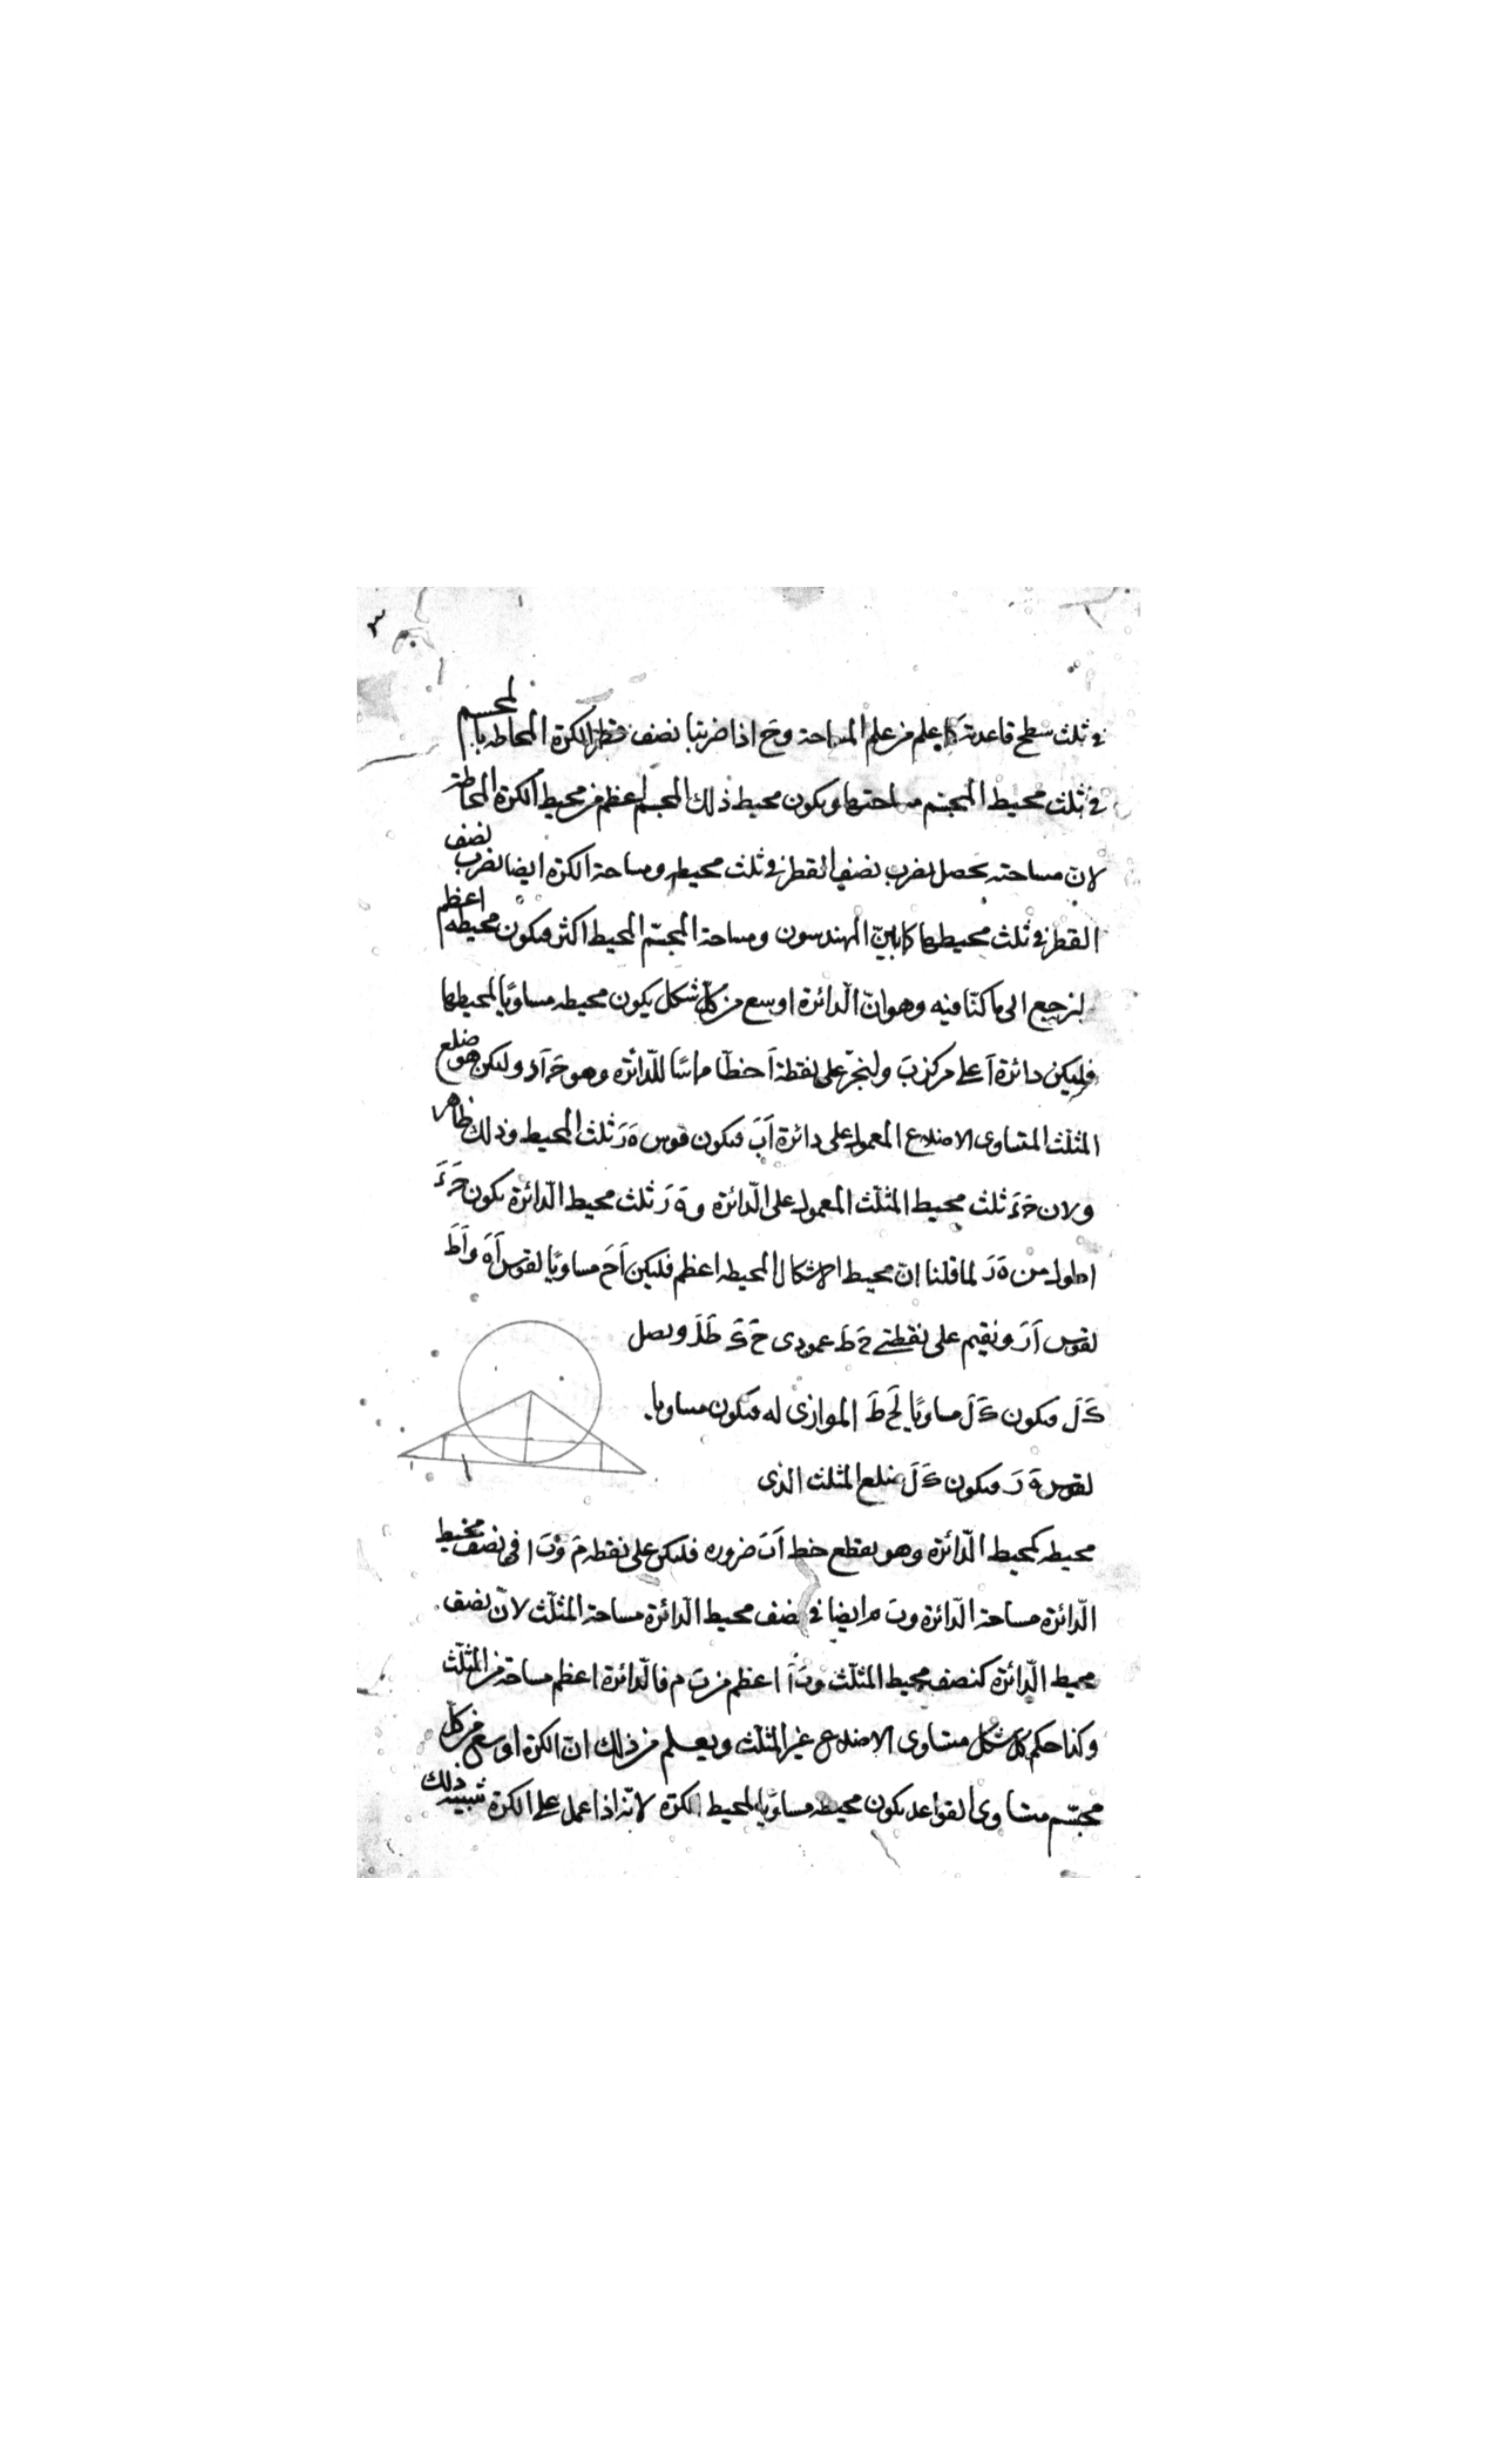 ٣
في ثلث سطح قاعدته كما يعلم من علم المساحة وح اذا ضربنا نصف قطر الكرة المحاطة بالمجسم
في ثلث محيط المجسّم مساحتها ويكون محيط ذلك المجسم اعظم من محيط الكرة المحاطة
لان مساحته يحصل بضرب نصف القطر في ثلث محيطه ومساحة الكرة ايضا بضرب نصف
القطر في ثلث محيطها كما بيّن المهندسون ومساحة المجسّم المحيط اكثر فيكون محيطه اعظم
لنرجع الى ما كنّا فيه وهو انّ الدّائرة اوسع من كلّ شكل يكون محيطه مساويًا لمحيطها
فليكن دائرة آ على مركز بَ ولنجرّ على نقطة آ خطّا مماسّا للدّائرة وهو حَ آ د وليكن هو ضلع
المثلث المتساوى الاضلاع المعمول على دائرة آبَ فيكون قوس هَ زَ ثلث المحيط وذلك ظاهر
ولان حَ دَ ثلث محيط المثلّث المعمول على الدّائرة وهَ زَ ثلث محيط الدّائرة يكون حَ دَ
اطول من هَ زَ لما قلنا انّ محيط الاشكال المحيطه اعظم فليكن آحَ مساويًا لقوس آهَ وآطَ
لقوس آزَ ونقيم على نقطتي حَ طَ عمودى حَ كَ طَ لَ ونصل
كَ لَ فيكون كَ لَ مساويًا لحَ طَ الموازى له فيكون مساويا
لقوس هَ زَ فيكون كَ لَ ضلع المثلث الذى
محيطه كمحيط الدّائرة وهو يقطع خط آبَ ضروره فليكن على نقطه مَ وبَ ا في نصف محيط
الدّائرة مساحة الدّائرة وبَ م ايضا في نصف محيط الدّائرة مساحة المثلّث لانّ نصف
محيط الدّائرة كنصف محيط المثلّث وبَ آ اعظم من بَ م فالدّائرة اعظم مساحة من المثلّث
وكذا حكم كلّ شكل متساوى الاضلاع غير المثلّث ويعلم من ذلك انّ الكرة اوسع من كلّ
مجسّم متساوى القواعد يكون محيطه مساويًا لمحيط الكرة لانّه اذا عمل على الكرة شبيه ذلك